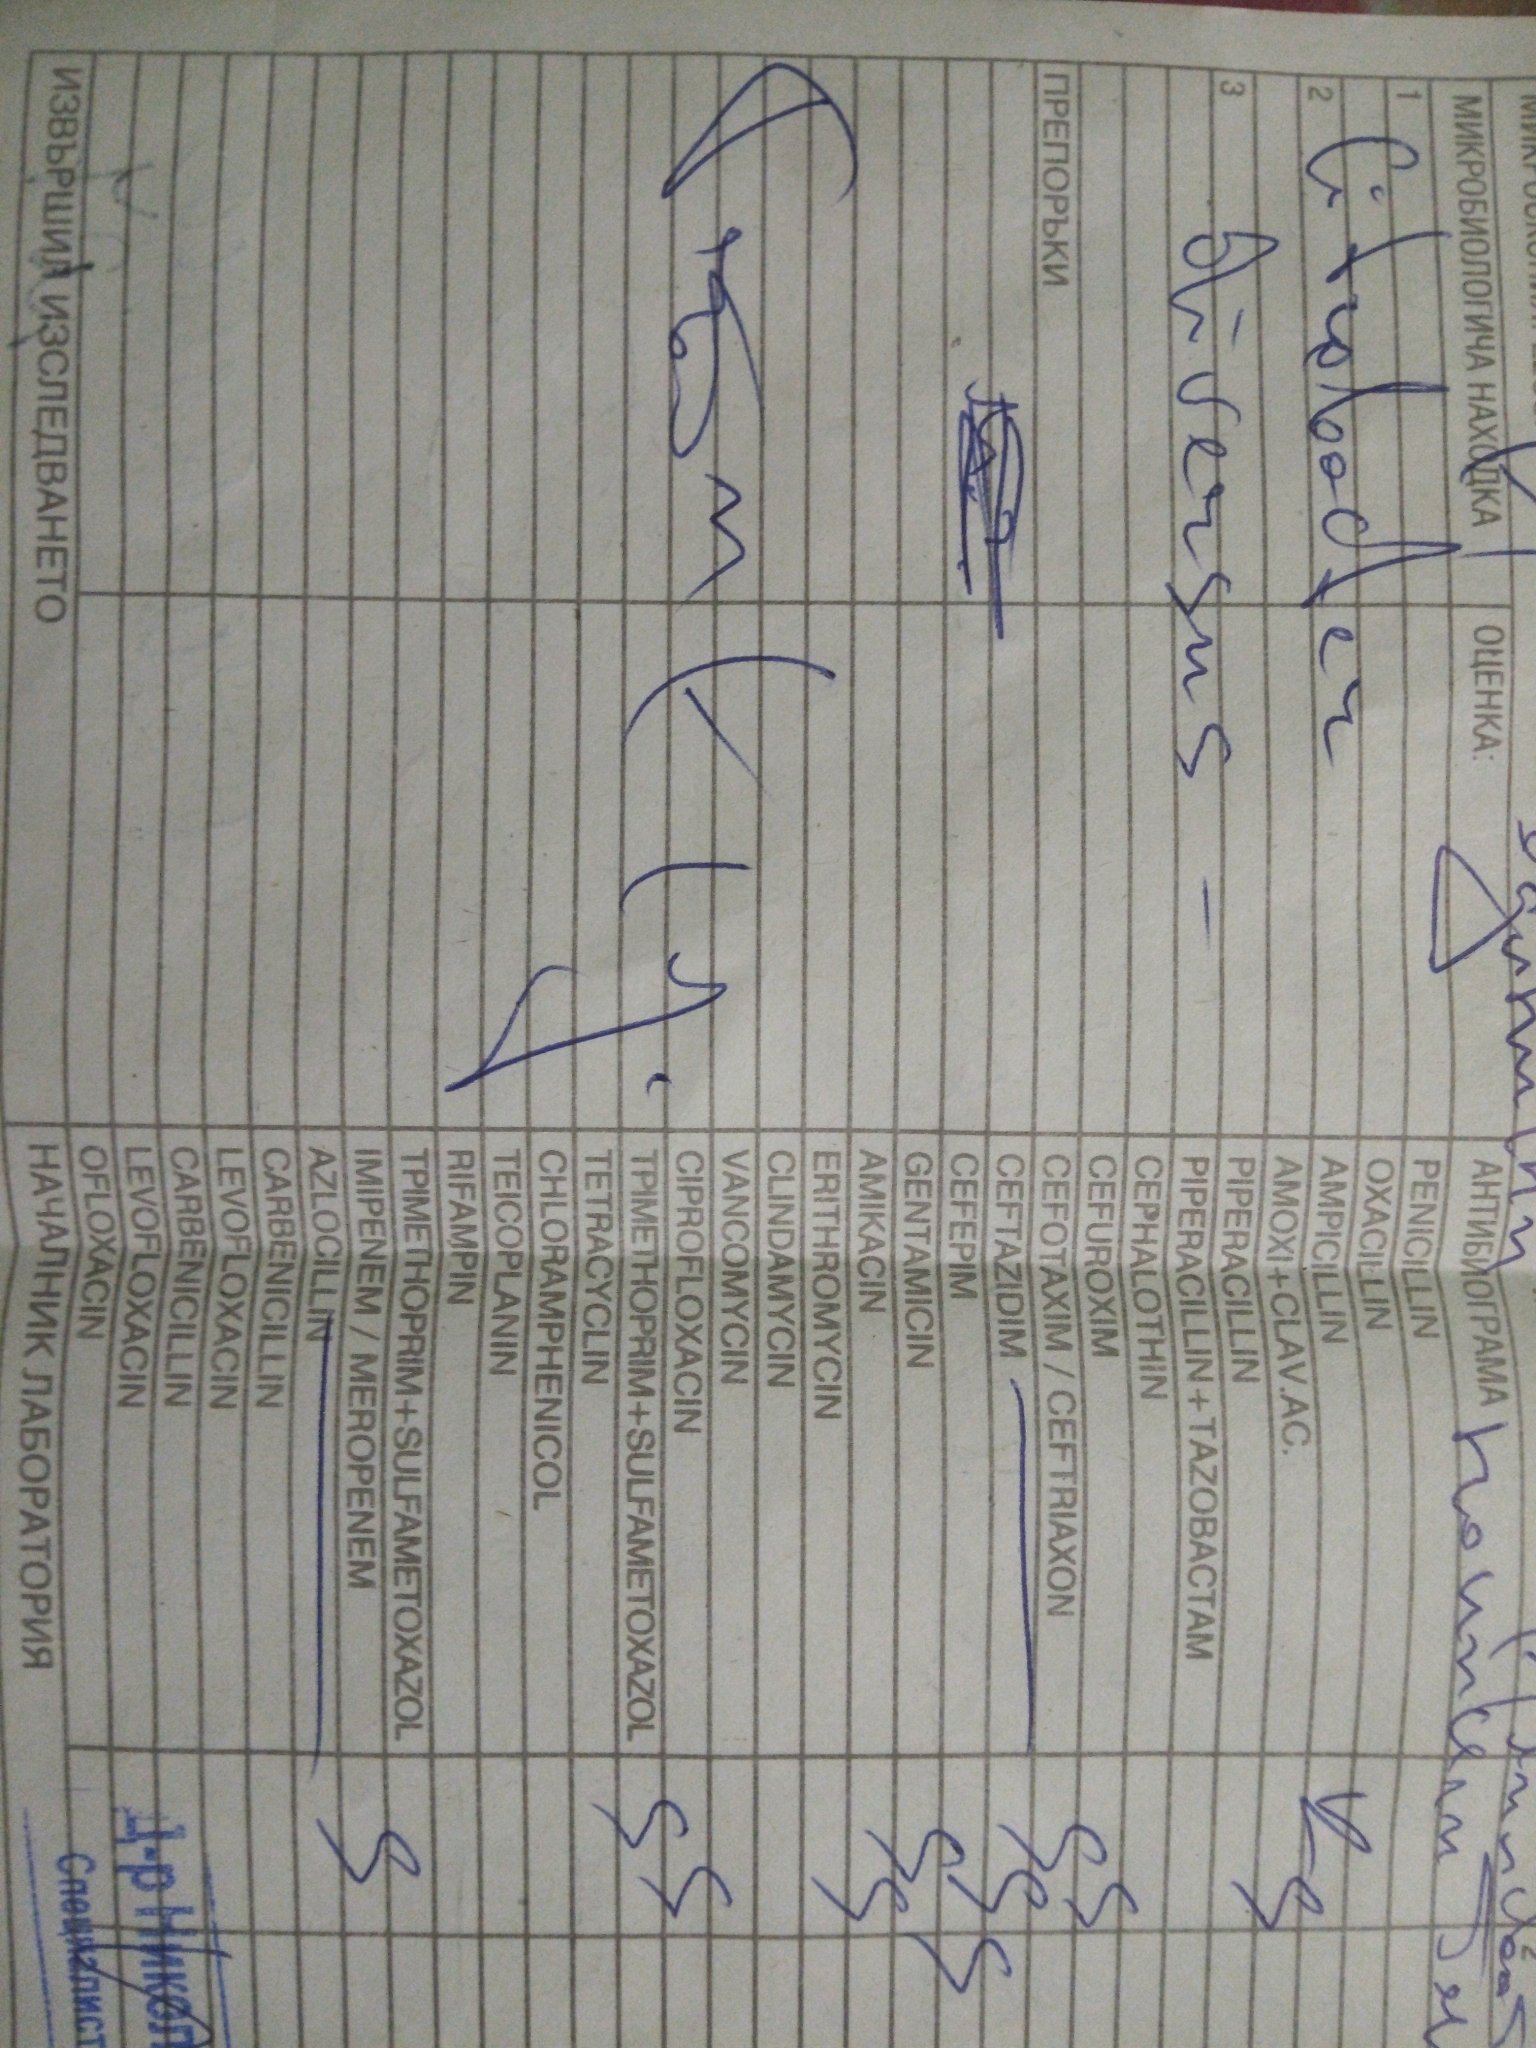 МИКРОБИОЛОГИЧА НАХОДКА
ОЦЕНКА:
АНТИБИОГРАМА
1
2
3
Citrobacter
diversus -
ПРЕПОРЪКИ
PENICILLIN
OXACILLIN
AMPICILLIN R
AMOXI+CLAV.AC. S
PIPERACILLIN
PIPERACILLIN+TAZOBACTAM
CEPHALOTHiN
CEFUROXIM S
CEFOTAXIM / CEFTRIAXON S
CEFTAZIDIM S
CEFEPIM S
GENTAMICIN S
AMIKACIN S
ERITHROMYCIN
CLINDAMYCIN
VANCOMYCIN
CIPROFLOXACIN S
ТPIMETHOPRIM+SULFAMETOXAZOL S
TETRACYCLIN
CHLORAMPHENICOL
TEICOPLANIN
RIFAMPIN
ТPIMETHOPRIM+SULFAMETOXAZOL
IMIPENEM / MEROPENEM S
AZLOCILLIN
CARBENICILLIN
LEVOFLOXACIN
CARBENICILLIN
LEVOFLOXACIN
OFLOXACIN
ИЗВЪРШИЛ ИЗСЛЕДВАНЕТО
НАЧАЛНИК ЛАБОРАТОРИЯ
Д-р НИКОЛ
Специалист